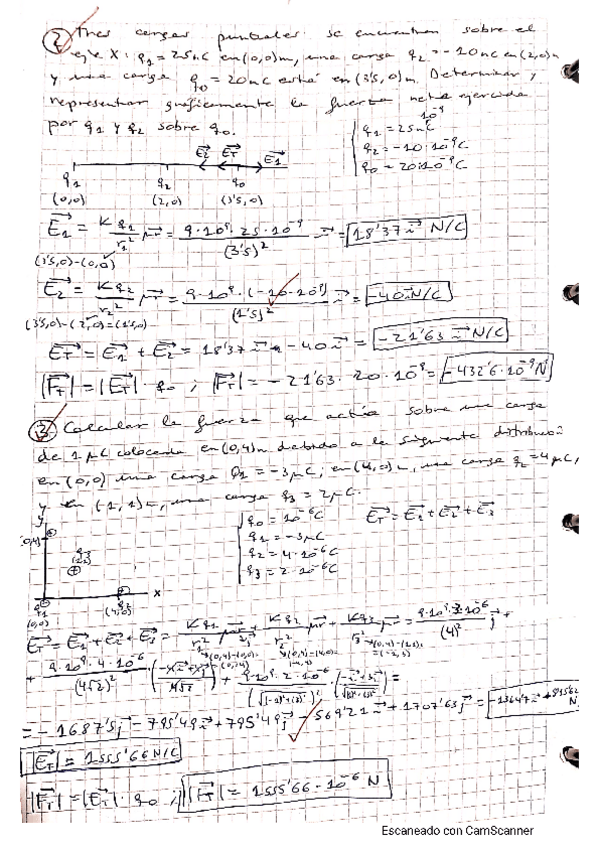 2) Tres cargas puntuales se encuentran sobre el
eje X: q1 = 25nC en (0,0)m, una carga q2 = -10nC en (2,0)m
y una carga q0 = 20nC está en (3'5,0)m. Determinar y
representar gráficamente la fuerza neta ejercida
por q1 y q2 sobre q0.
q1 = 25·10⁻⁹C
q2 = -10·10⁻⁹C
q0 = 20·10⁻⁹C
E2 ET E1
q1 q2 q0
(0,0) (2,0) (3'5,0)
E1 = K q1 / r1² = 9·10⁹·25·10⁻⁹ / (3'5)² = 18'37 N/C
(3'5,0)-(0,0)
E2 = K q2 / r2² = 9·10⁹·(-10·10⁻⁹) / (1'5)² = -40 N/C
(3'5,0)-(2,0)=(1'5,0)
ET = E1 + E2 = 18'37 - 40 = -21'63 N/C
|FT| = |ET| · q0 ; |FT| = -21'63 · 20·10⁻⁹ = -432'6·10⁻⁹ N
3) Calcular la fuerza que actúa sobre una carga
de 1 μC colocada en (0,4)m debido a la siguiente distribución
en (0,0) una carga Q1 = -3μC, en (4,0)m, una carga q2 = 4μC,
y en (-1,1)m, una carga q3 = 2μC.
q0 = 10⁻⁶C
q1 = -3μC
q2 = 4·10⁻⁶C
q3 = 2·10⁻⁶C
ET = E1 + E2 + E3
y
(0,4)
q3
x
q1
(0,0)
q2
(4,0)
ET = E1 + E2 + E3 = K q1 / r1² + K q2 / r2² + K q3 / r3² = 9·10⁹·3·10⁻⁶ / (4)² j +
+ 9·10⁹·4·10⁻⁶ / (4√2)² + 9·10⁹·2·10⁻⁶ =
= -1687'5j - 795'49i + 795'49j - 569'21i + 1707'63j =
|ET| = 1555'66 N/C
|FT| = |ET| · q0 ; |FT| = 1555'66·10⁻⁶ N
Escaneado con CamScanner